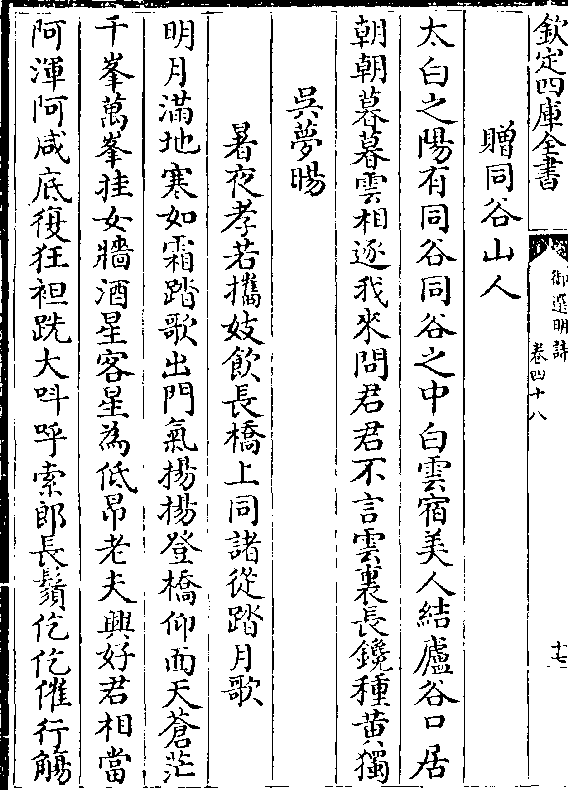 欽定四庫全書
御選明詩
卷四十八
十七
贈同谷山人
太白之陽有同谷同谷之中白雲宿美人結廬谷口居
朝朝暮暮雲相逐我來問君君不言雲裏長鑱種黄獨
吳夢暘
暑夜孝若攜妓飲長橋上同諸從踏月歌
明月滿地寒如霜踏歌出門氣揚揚登橋仰面天蒼茫
千峯萬峯挂女牆酒星客星為低昂老夫興好君相當
阿渾阿咸底復狂袒跣大呌呼索郎長鬚仡仡催行觴